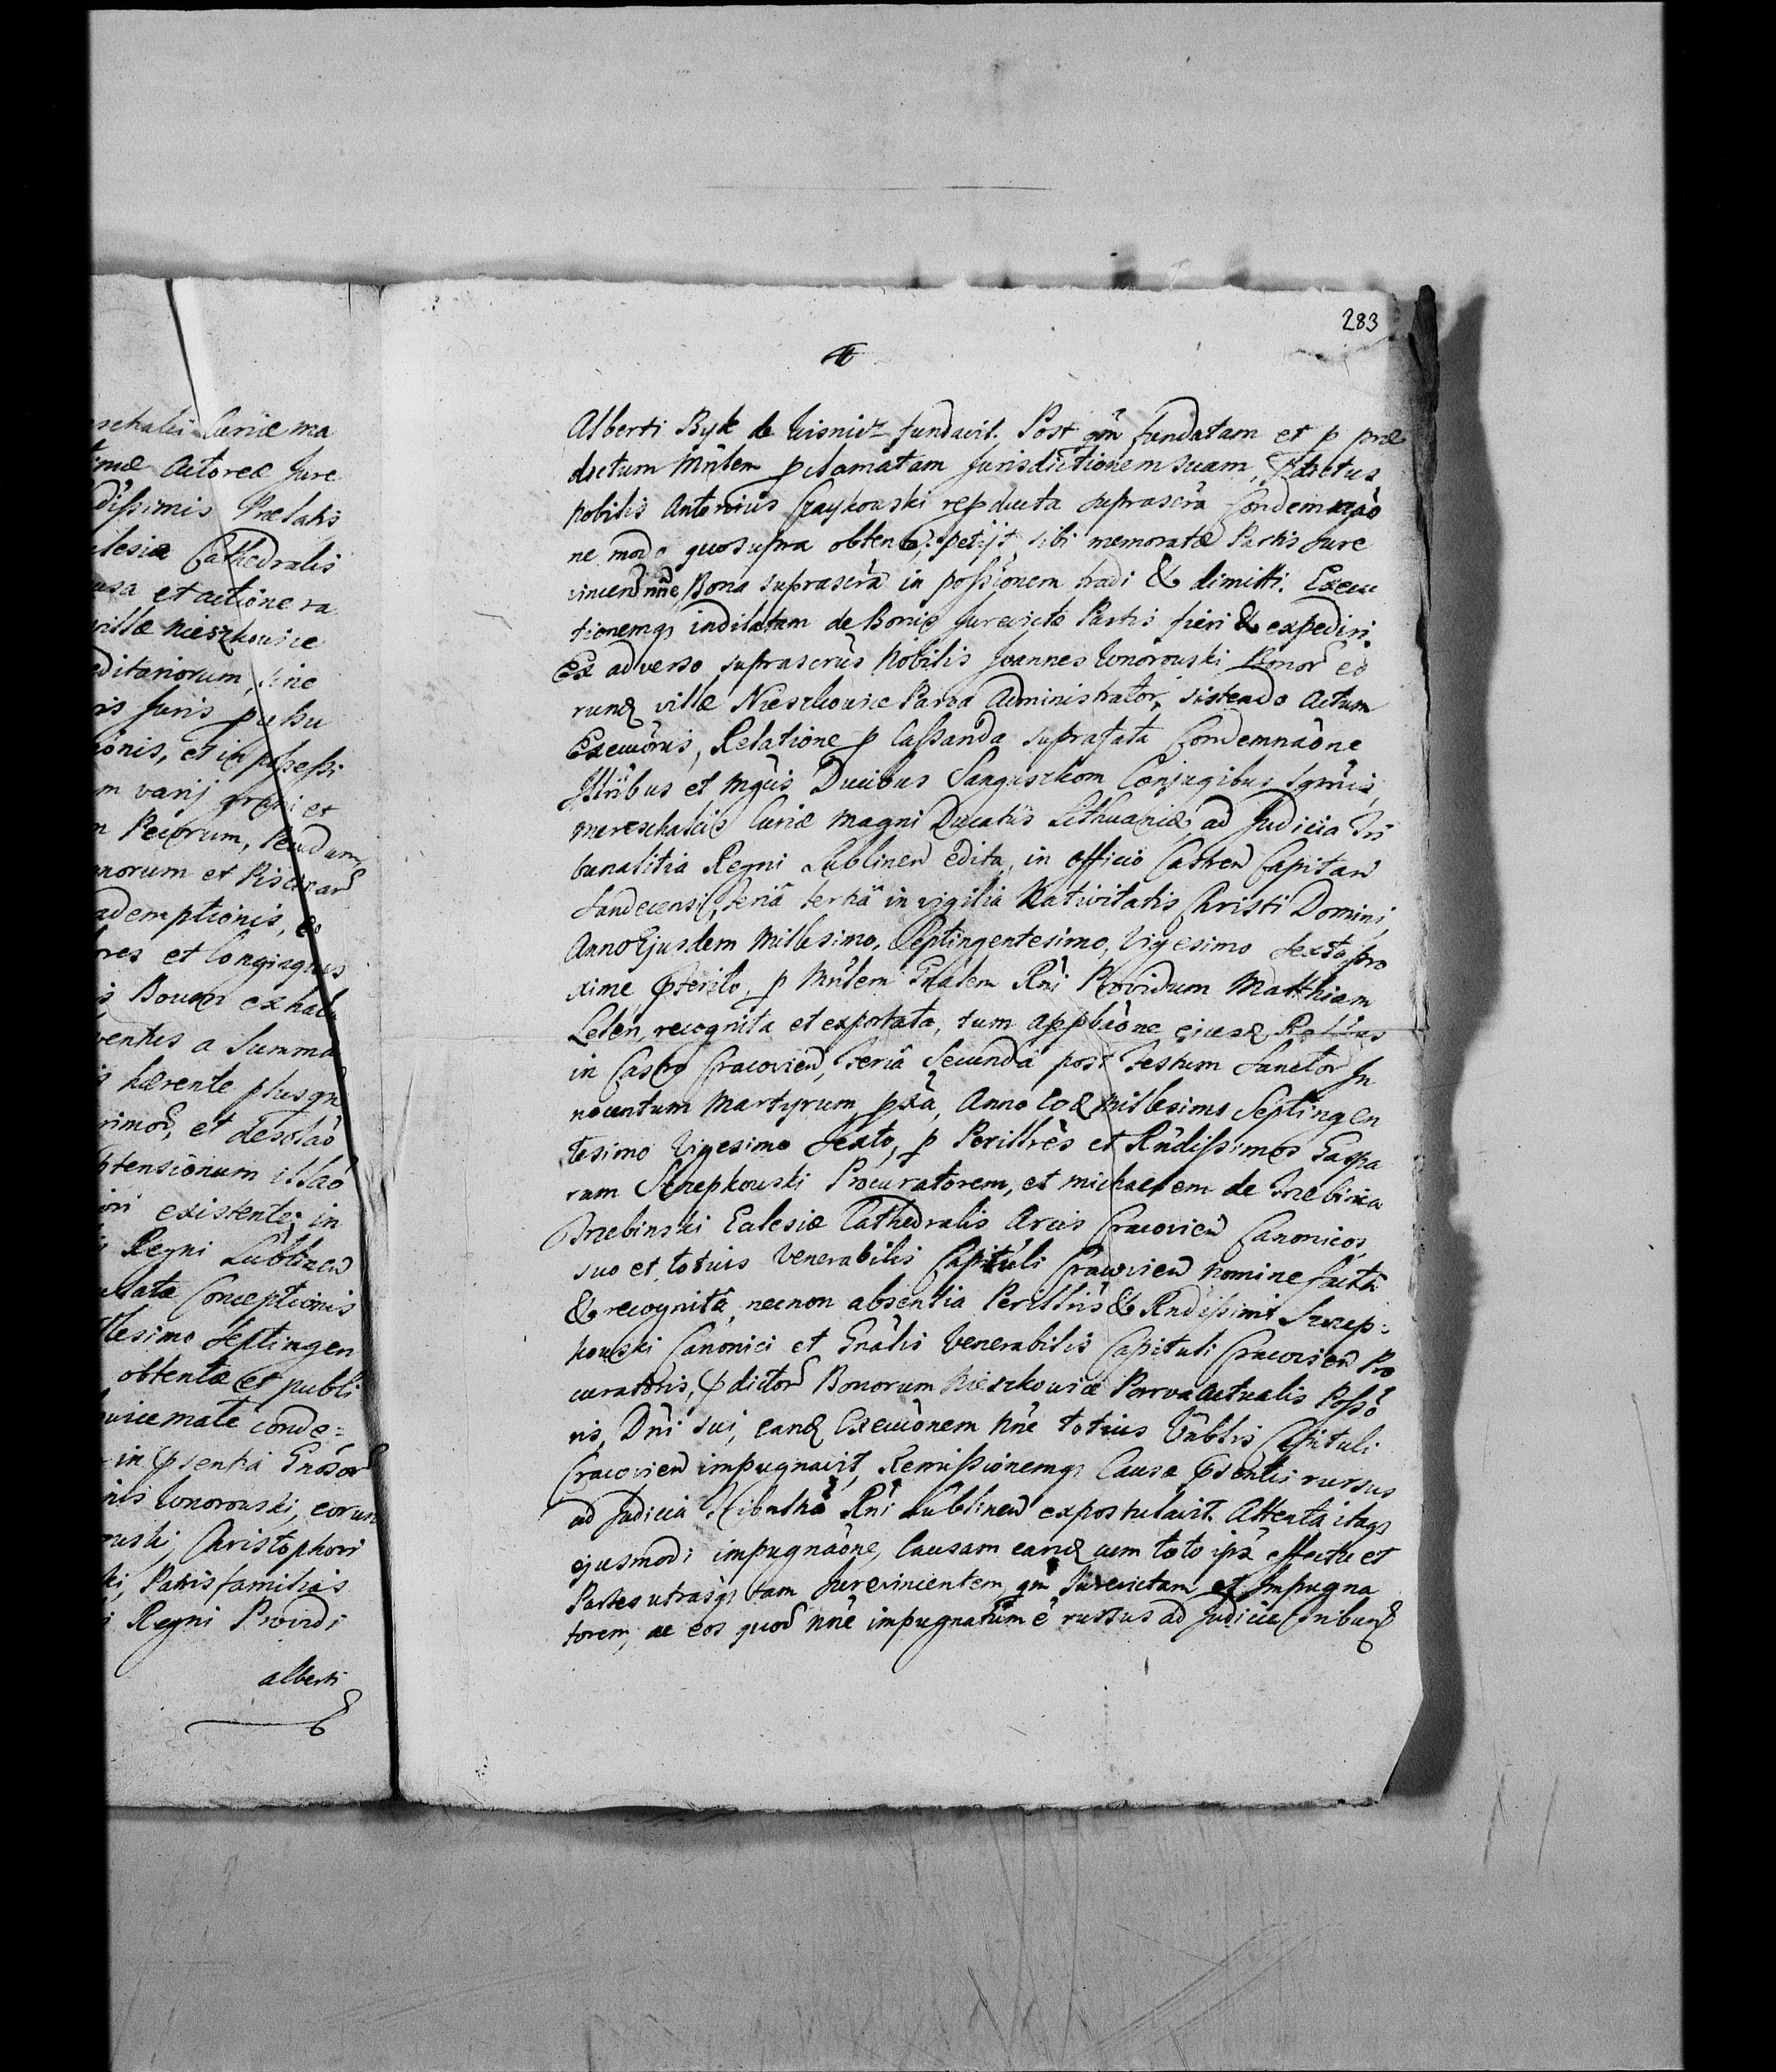 schalci Curiæ ma
imæ Actoreæ Jure
dissimis Prælatis
clesiæ Cathedralis
usa et actione ra
villæ Nieszkowice
editariorum, sine
ris Juris
ionis, et in possessi
m varij grani et
n Pecorum, Pecudum
norum et Piscinar
ademptionis, &
res et longinquas
Bonor exhab
ventus a Summa
hærente plusqu
rimor, et desolaõ
tensionum illaõ
ori existente, in
Regni Lublinen
ulata Conceptionis
llesimo Septingen
obtentæ et publi
vicemale conde=
in pñsentia Gnosor
nis Wonorowski, eorum
ruski, Christophori
ki, Patrisfamilias
Regni Providi
alberti
283
Alberti Byk de Wisnicz fundavit. Post qm̃ fundatam et p præ
dictum Mñlem pclamatam Jurisdictionem suam, Pdictus
Nobilis Antonius Czaykowski repducta suprascrã Condemnaõ
ne modo quosupra obtenta, petijt sibi memoratæ Partis Jure
vincen nñe Bona suprascrã in possionem tradi & dimitti. Execu
tionemqȝ indilatam de Bonis Jurevictæ Partis fieri & expediri.
Ex adverso suprascrũs Nobilis Joannes Wonorowski Bonor eo
rund villæ Nieszkowice Parva Administrator, sistendo Actum
Execuõnis, Relatione p Cassanda suprafata Condemnaõne
Illribus et Mgcis Ducibus Sanguszkom Conjugibus Sgnis,
Mareschalcis Curiæ Magni Ducatûs Lithuaniæ, ad Judicia Tri
bunalitia Regni Lublinen edita, in Officio Castren Capitan
Sandecensi, feriâ tertiâ in vigilia Nativitatis Christi Domini,
Anno Ejusdem Millesimo, Septingentesimo, Vigesimo Sexto, pro
xime pterito, p Mñlem Gñalem Rñi Providum Matthiam
Leleń, recognita et exportata, tum appllaõne ejusd
in Castro Cracovien, Feriâ Secundâ post Festum Sanctor In
nocentum Martyrum pxa, Anno eod Millesimo Septingen
tesimo Vigesimo Sexto, p Perillrẽs et Rñdissimos Gaspa
rum Szrepkowski Procuratorem, et Michaelem de Trzebinia
Trzebinski Ecclesiæ Cathedralis Arcis Cracovien Canonicos,
suo et totius Venerabilis Capituli Cracovien nomine factâ
& recognitâ, necnon absentia Perillris & Rndissimi Szrep=
kowski Canonici et Gnãlis Venerabilis Capituli Cracovien Pro
curatoris, pdictor Bonorum Nieszkowice Parva Actualis Possõ
ris, Dñi sui, eand Execuõnem nñe totius Vñblis Capituli
Cracovien impugnavit, Remissionemqȝ Causæ psentis rursus
ad Judicia Rñi Lublinen expostulavit. Attenta itaqȝ
ejusmodi impugnaõne, Causam eand cum toto ipsã effectu et
Partes utrasqȝ tam Jurevincentem, qm̃ Jurevictam et Impugna
torem, ac eos quor nñe impugnatum ẽ rursus ad Judicia Tribun